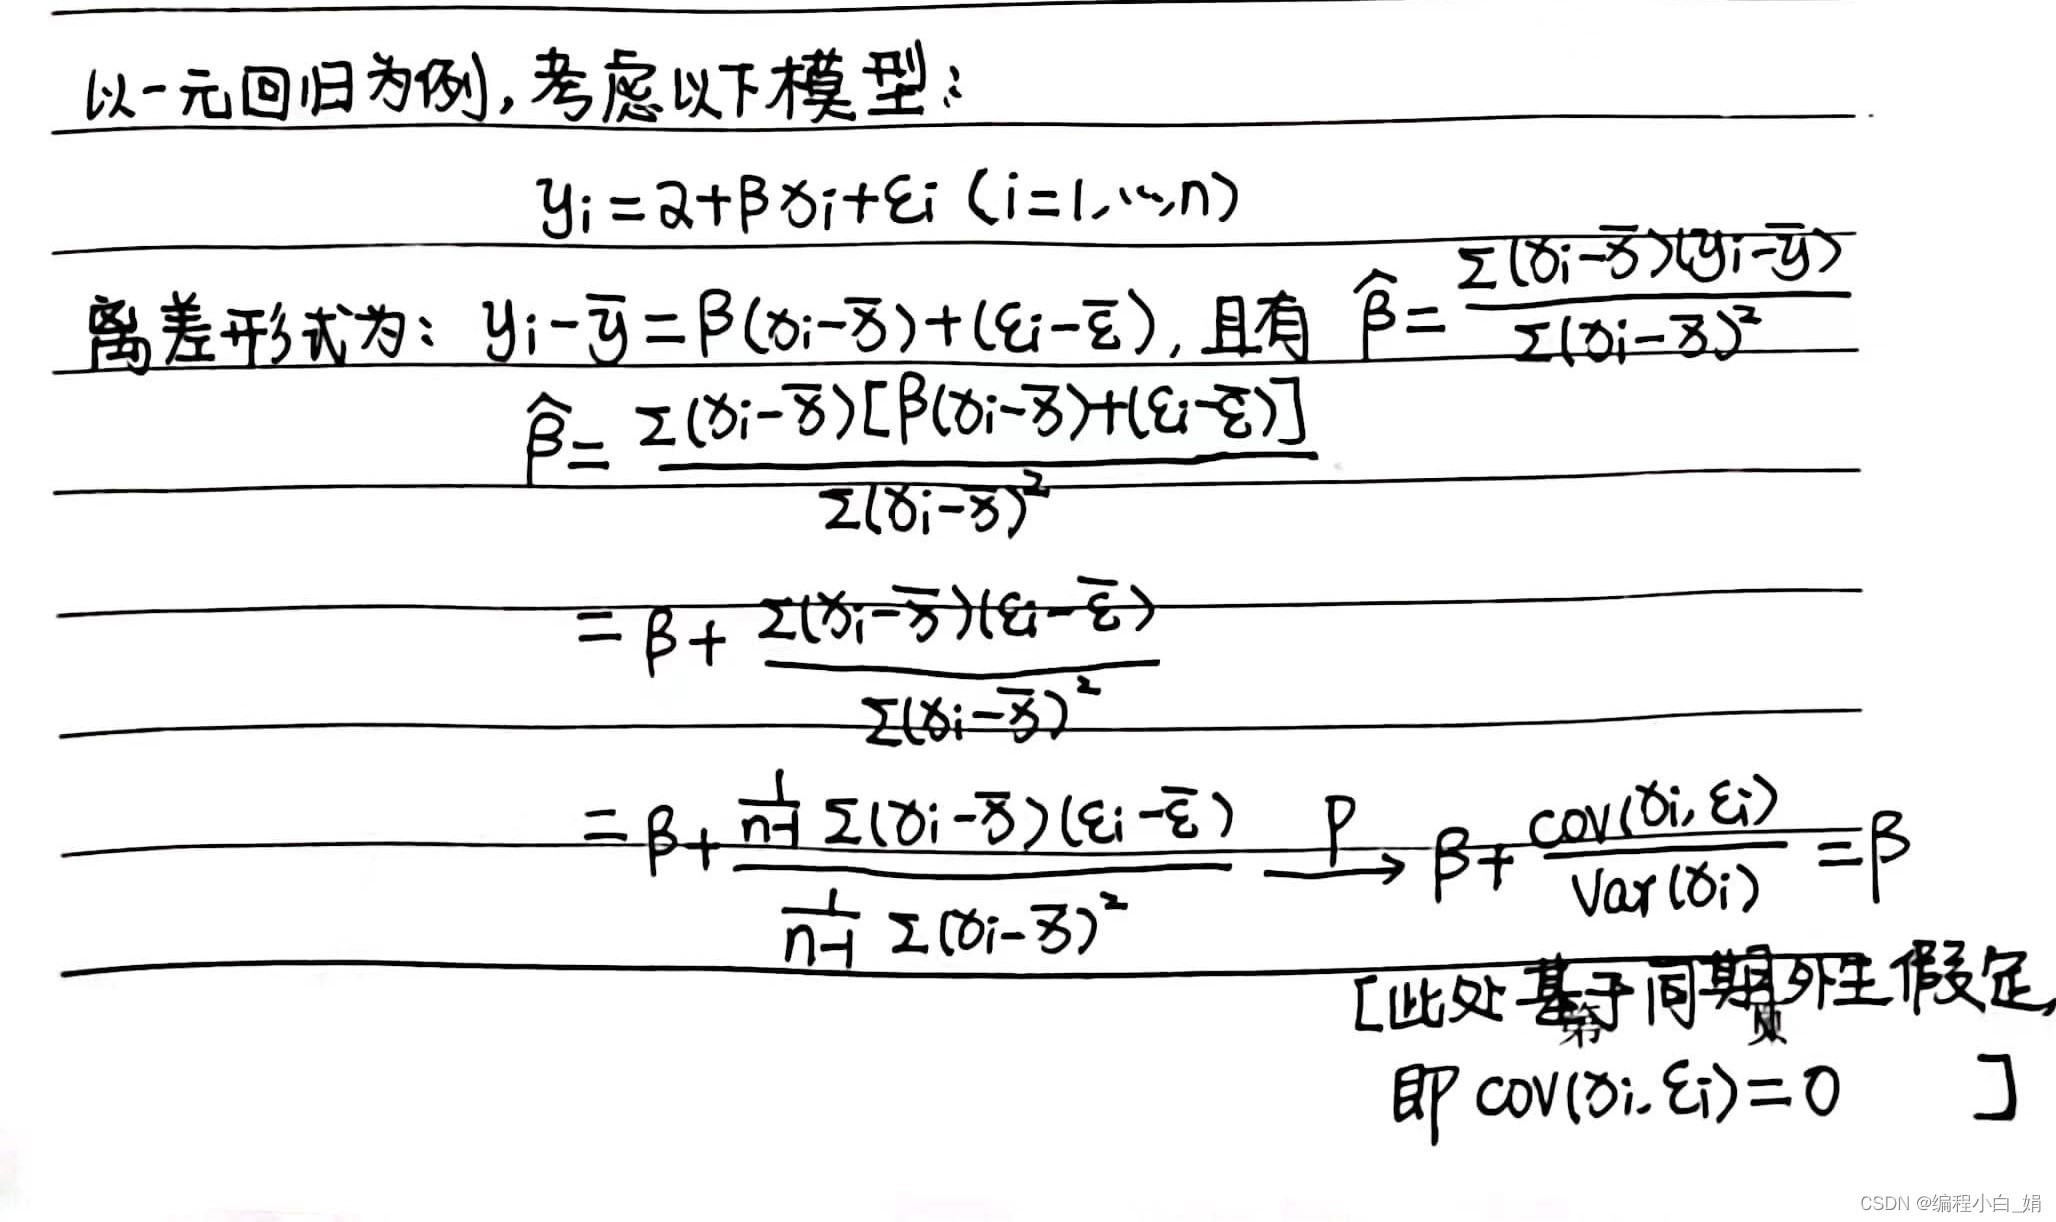 以一元回归为例,考虑以下模型:
yi=α+βxi+εi (i=1,…,n)
离差形式为: yi-ȳ=β(xi-x̄)+(εi-ε̄), 且有 β̂=Σ(xi-x̄)(yi-ȳ)/Σ(xi-x̄)²
β̂=Σ(xi-x̄)[β(xi-x̄)+(εi-ε̄)]/Σ(xi-x̄)²
=β+Σ(xi-x̄)(εi-ε̄)/Σ(xi-x̄)²
=β+1/(n-1) Σ(xi-x̄)(εi-ε̄)/1/(n-1) Σ(xi-x̄)² P→ β+cov(xi,εi)/Var(xi)=β
[此处基于同期外生假定,
第 页
即 cov(xi,εi)=0 ]
CSDN @编程小白_娟